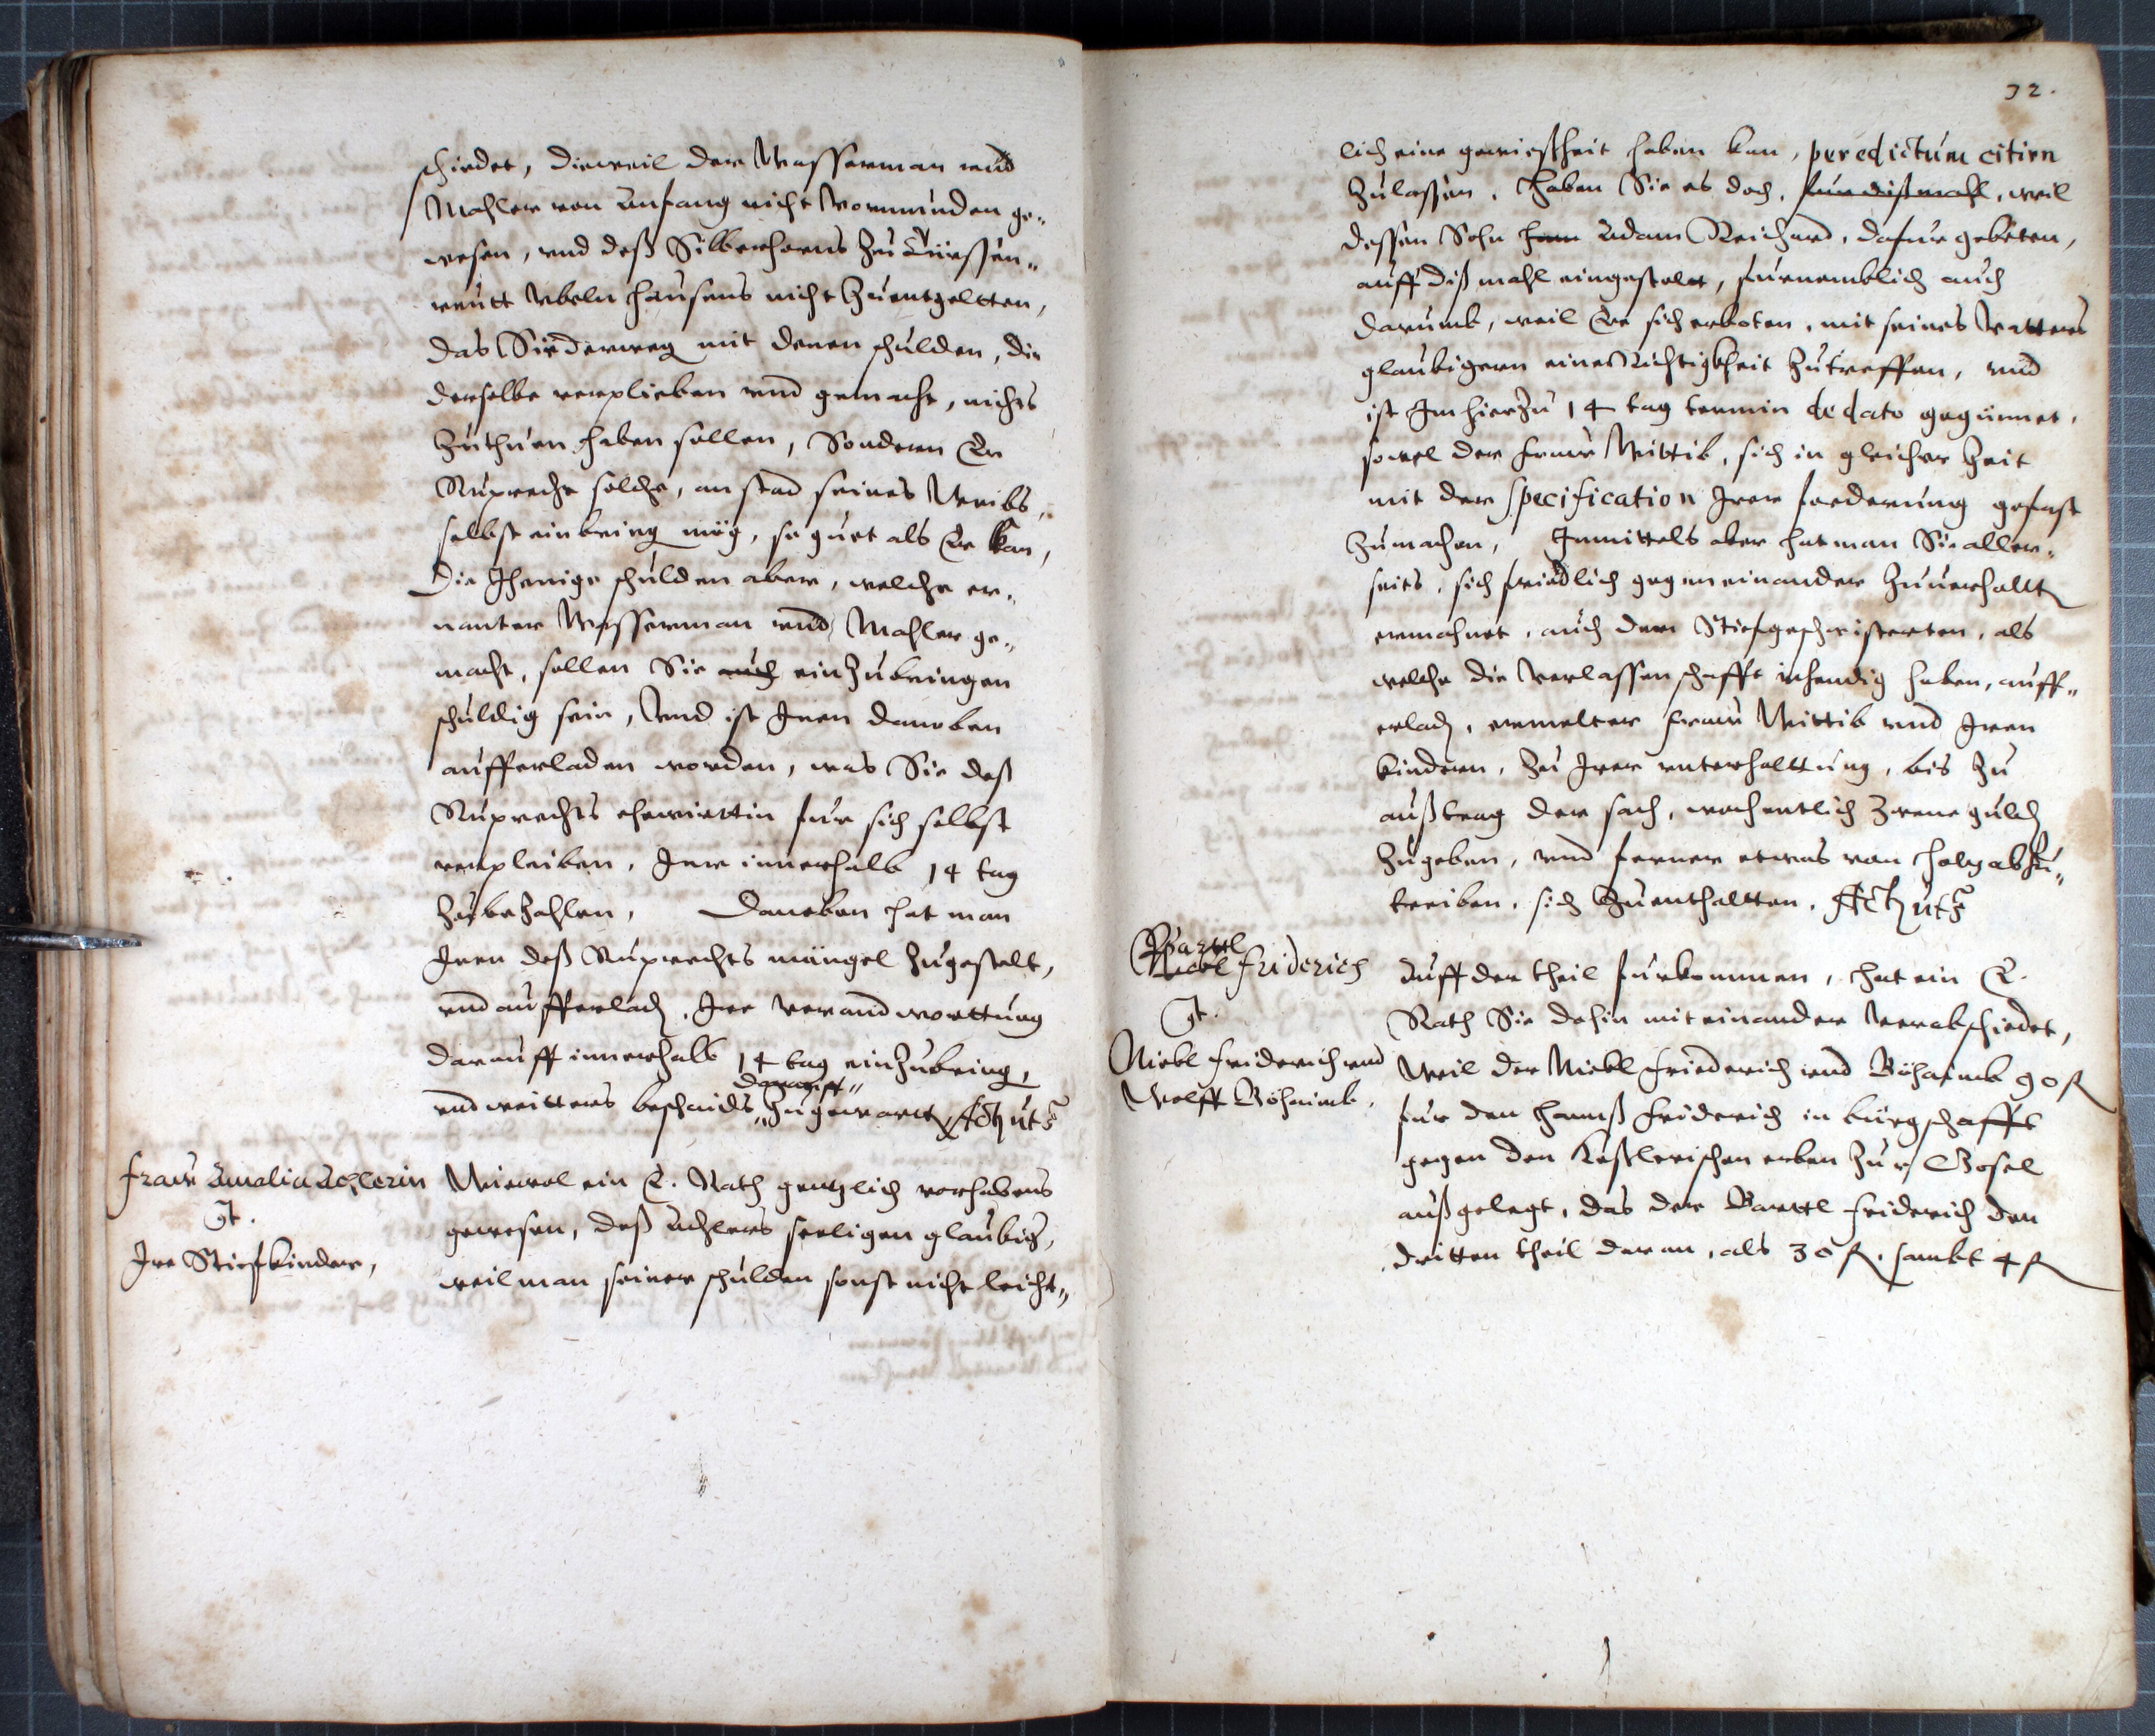 schiedet, dieweil der Wasserman und
Mahler von Anfang nicht Vormunden ge„
wesen, und deß Silberhorns zu Türssen„
reutt ubeln hausens nicht zuentgeltten,
das Sie derweg mit denen schulden, die
derselbe verplieben und gemacht, nichts
zuthuen haben sollen, Sondern Er
Ruprecht solche, an stad seines Weibs,
selbst einbring mög, so guet als Er kan,
Die Jhenige schulden aber, welche er„
nanter Wasserman und Mahler ge„
macht, sollen Sie auch einzubringen
schuldig sein, Und ist Jnen daneben
aufferladen worden, was Sie deß
Ruprechts ehewirttin fur sich selbst
verpleiben, Jnr innerhalb 14 tag
zubezahlen, Daneben hat man
Jnen deß Ruprechts mängel zugestelt,
und aufferladen, Jre verandworttung
darauff innerhalb 14 tag einzubring,
darauff„
und weitters beschaids „zugewartt Act ut s
Fraw Amalia Achlerin
Ct.
Jre Stiefkinder,
Wiewol ein E. Rath gentzlich vorhabens
gewesen, deß Achlers seeligen glaubig,
weil man seiner schulden sonst nicht leicht„
32.
lich eine gewießheit haben kan, per edictum citirn
zulassen, Haben Sie es doch, fur dißmahl, weil
dessen Sohn Adam Reichard, dafur gebeten,
auff diß mahl eingestelt, furnemblich auch
darumb, weil Er sich erboten, mit seines Vatters
glaubigern eine Richtigkheit zutreffen, und
ist Jm hierzu 14 tag termin de dato gegünnet,
sowol der fraw Wittib, sich in gleicher Zeit
mit der specification Jrer forderung gefast
zumachen, Jnmittels aber hat man Sie aller„
seits, sich friedlich gegeneinander zuverhallt
ermahnet, auch den Stiefgeschwisterten, als
welche die Verlassenschafft inhendig haben, auff„
erlad, ermelter fraw Wittib und Jren
kindern, zu Jrer unterhalttung, bis zu
außtrag der sach, wochentlich zwene guld
zugeben, und ferner etwas von Holz abzu„
treiben, sich zuenthaltten. Act ut s
Barttl
Friderich
Ct.
Nickl Friderich und
Wolff Böhaimb.
Auff der theil furkommen, hat ein E.
Rath Sie dahin mit einander verabschiedet,
Weil der Nickl Friederich und Böhaimb 90 fl
fur den Hannß Friderich in bürgschafft
gegen den Keßlerischen erben zur Gosel
außgelegt, das der Barttl Friderich den
dritten theil daran, als 30 fl. sambt 4 fl